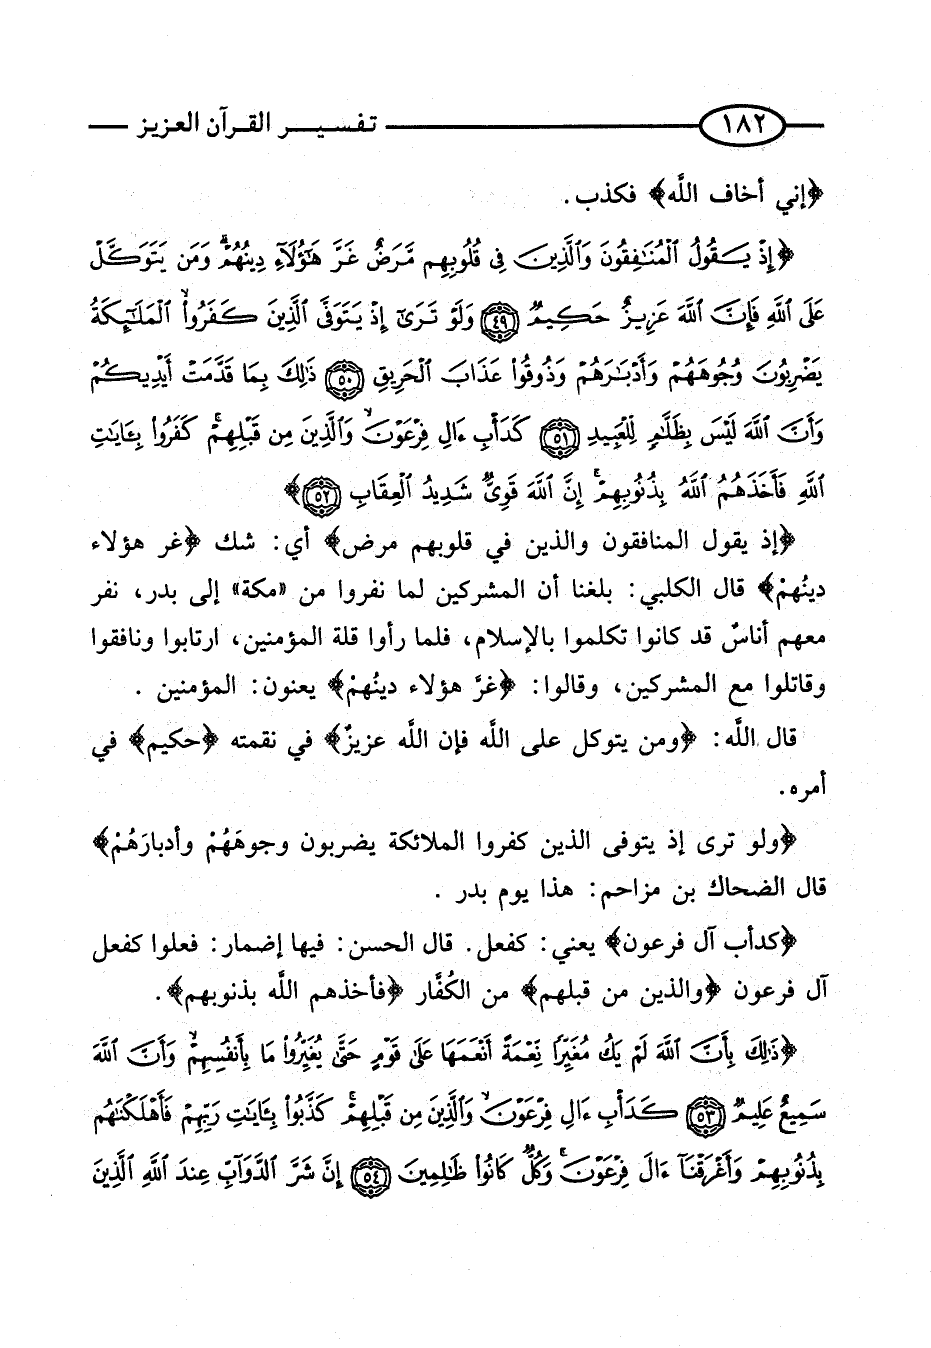 ١٨٢ تفسير القرآن العزيز
﴿إني أخاف اللَّه﴾ فكذب.
﴿إِذْ يَقُولُ ٱلْمُنَٰفِقُونَ وَٱلَّذِينَ فِى قُلُوبِهِم مَّرَضٌ غَرَّ هَٰٓؤُلَآءِ دِينُهُمْ ۗ وَمَن يَتَوَكَّلْ
عَلَى ٱللَّهِ فَإِنَّ ٱللَّهَ عَزِيزٌ حَكِيمٌ ٤٩ وَلَوْ تَرَىٰٓ إِذْ يَتَوَفَّى ٱلَّذِينَ كَفَرُوا۟ ۙ ٱلْمَلَٰٓئِكَةُ
يَضْرِبُونَ وُجُوهَهُمْ وَأَدْبَٰرَهُمْ وَذُوقُوا۟ عَذَابَ ٱلْحَرِيقِ ٥٠ ذَٰلِكَ بِمَا قَدَّمَتْ أَيْدِيكُمْ
وَأَنَّ ٱللَّهَ لَيْسَ بِظَلَّٰمٍ لِّلْعَبِيدِ ٥١ كَدَأْبِ ءَالِ فِرْعَوْنَ ۙ وَٱلَّذِينَ مِن قَبْلِهِمْ ۚ كَفَرُوا۟ بِـَٔايَٰتِ
ٱللَّهِ فَأَخَذَهُمُ ٱللَّهُ بِذُنُوبِهِمْ ۗ إِنَّ ٱللَّهَ قَوِىٌّ شَدِيدُ ٱلْعِقَابِ ٥٢﴾
﴿إذ يقول المنافقون والذين في قلوبهم مرض﴾ أي: شك ﴿غر هؤلاء
دينُهمْ﴾ قال الكلبي: بلغنا أن المشركين لما نفروا من «مكة» إلى بدر، نفر
معهم أناسٌ قد كانوا تكلموا بالإسلام، فلما رأوا قلة المؤمنين، ارتابوا ونافقوا
وقاتلوا مع المشركين، وقالوا: ﴿غرَّ هؤلاء دينُهمْ﴾ يعنون: المؤمنين .
قال اللَّه: ﴿ومن يتوكل على اللَّه فإن اللَّه عزيزٌ﴾ في نقمته ﴿حكيم﴾ في
أمره.
﴿ولو ترى إذ يتوفى الذين كفروا الملائكة يضربون وجوهَهُمْ وأدبارَهُمْ﴾
قال الضحاك بن مزاحم: هذا يوم بدر .
﴿كدأب آل فرعون﴾ يعني: كفعل. قال الحسن: فيها إضمار: فعلوا كفعل
آل فرعون ﴿والذين من قبلهم﴾ من الكُفَّار ﴿فأخذهم اللَّه بذنوبهم﴾.
﴿ذَٰلِكَ بِأَنَّ ٱللَّهَ لَمْ يَكُ مُغَيِّرًا نِّعْمَةً أَنْعَمَهَا عَلَىٰ قَوْمٍ حَتَّىٰ يُغَيِّرُوا۟ مَا بِأَنفُسِهِمْ ۙ وَأَنَّ ٱللَّهَ
سَمِيعٌ عَلِيمٌ ٥٣ كَدَأْبِ ءَالِ فِرْعَوْنَ ۙ وَٱلَّذِينَ مِن قَبْلِهِمْ ۚ كَذَّبُوا۟ بِـَٔايَٰتِ رَبِّهِمْ فَأَهْلَكْنَٰهُم
بِذُنُوبِهِمْ وَأَغْرَقْنَآ ءَالَ فِرْعَوْنَ ۚ وَكُلٌّ كَانُوا۟ ظَٰلِمِينَ ٥٤ إِنَّ شَرَّ ٱلدَّوَآبِّ عِندَ ٱللَّهِ ٱلَّذِينَ